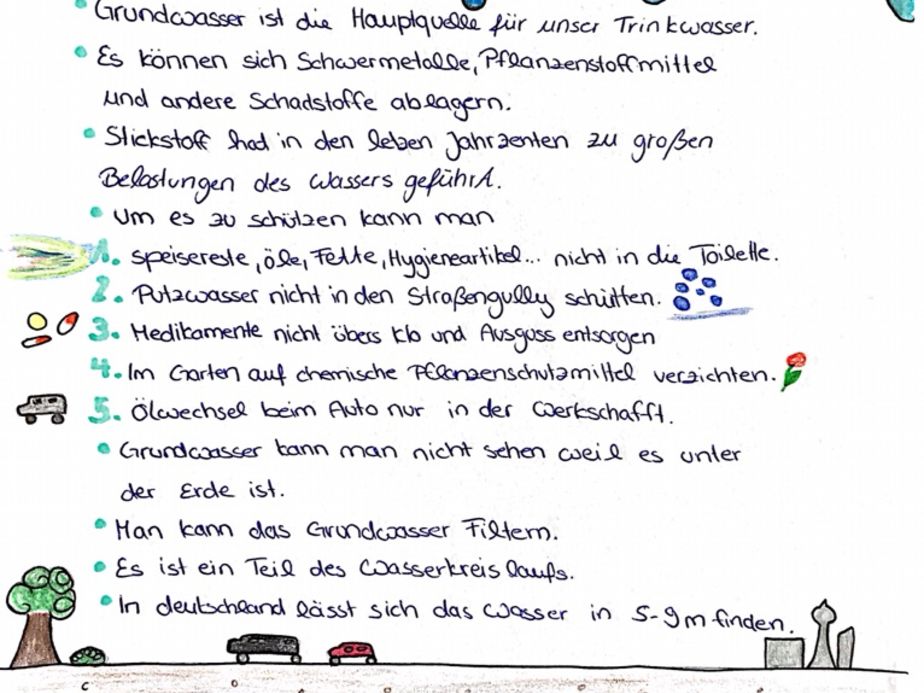 • Grundwasser ist die Hauptquelle für unser Trinkwasser.
• Es können sich Schwermetalle, Pflanzenstoffmittel
und andere Schadstoffe ablagern.
• Stickstoff had in den letzen Jahrzenten zu großen
Belastungen des Wassers geführt.
• Um es zu schützen kann man
1. Speisereste, öle, Fette, Hygieneartikel... nicht in die Toilette.
2. Putzwasser nicht in den Straßengully schütten.
3. Medikamente nicht übers Klo und Ausguss entsorgen
4. Im Garten auf chemische Pflanzenschutzmittel verzichten.
5. Ölwechsel beim Auto nur in der Werkschafft.
• Grundwasser kann man nicht sehen weil es unter
der Erde ist.
• Man kann das Grundwasser Filtern.
• Es ist ein Teil des Wasserkreislaufs.
• In deutschland lässt sich das Wasser in 5-9m finden.